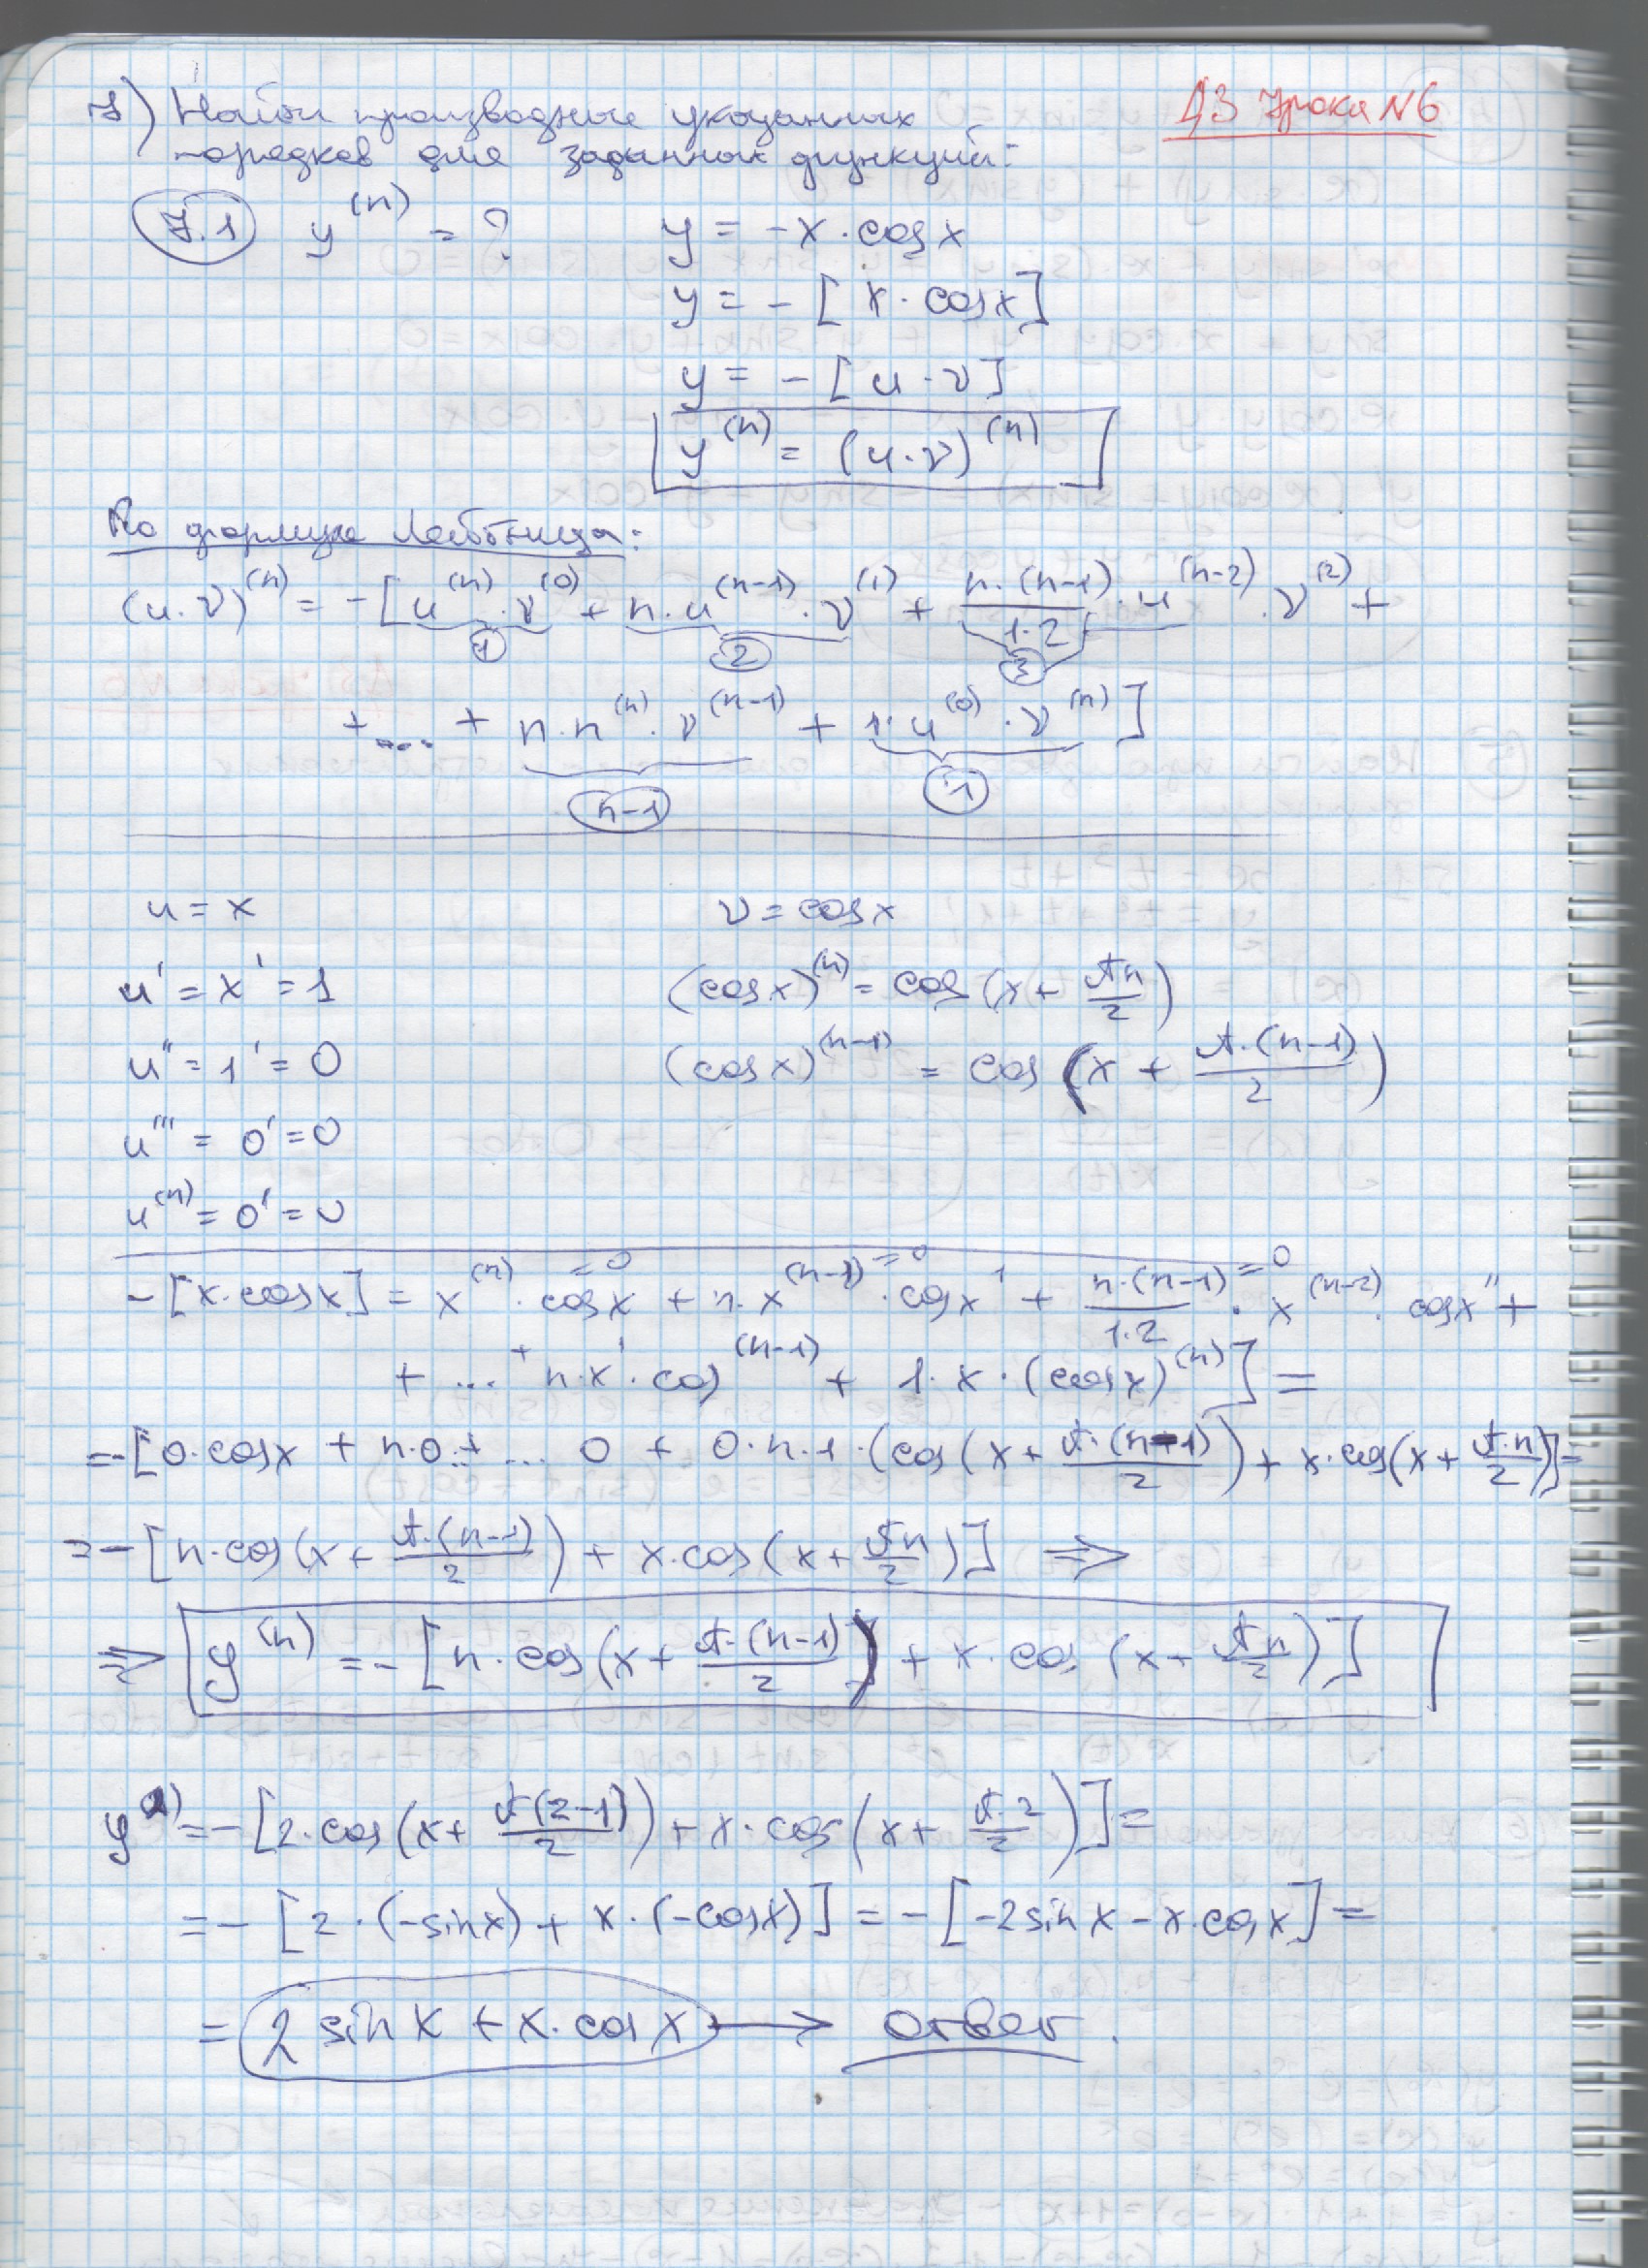 ДЗ Урока N6
7) Найти производные указанных
порядков для заданных функций:
7.1 y^(n) = ? y = -x · cos x
y = - [x · cos x]
y = - [u · v]
y^(n) = (u · v)^(n)
По формуле Лейбница:
(u · v)^(n) = -[u^(n) · v^(0) + n · u^(n-1) · v^(1) + n·(n-1)/1·2 · u^(n-2) · v^(2) +
1 2 3
+ .... + n · n^(n) · v^(n-1) + 1 · u^(0) · v^(n)]
n-1 1
u = x v = cos x
u' = x' = 1 (cos x)^(n) = cos (x + πn/2)
u'' = 1' = 0 (cos x)^(n-1) = cos (x + π·(n-1)/2)
u''' = 0' = 0
u^(n) = 0' = 0
- [x · cos x] = x^(n) =0 · cos x + n · x^(n-1) =0 · cos x' + n·(n-1)/1·2 =0 · x^(n-2) · cos x'' +
+ ... + n · x' · cos^(n-1) + 1 · x · (cos x)^(n)] =
= -[0 · cos x + n · 0 + ... 0 + 0 · n · 1 · (cos (x + π·(n-1)/2) + x · cos(x + π·n/2)] =
= - [n · cos(x + π·(n-1)/2) + x · cos(x + πn/2)] ⇒
⇒ y^(n) = - [n · cos(x + π·(n-1)/2) + x · cos (x + πn/2)]
= - [2 · cos(x + π(2-1)/2) + x · cos(x + π·2/2)] =
= - [2 · (-sin x) + x · (-cos x)] = - [-2 sin x - x · cos x] =
= 2 sin x + x · cos x → ответ.